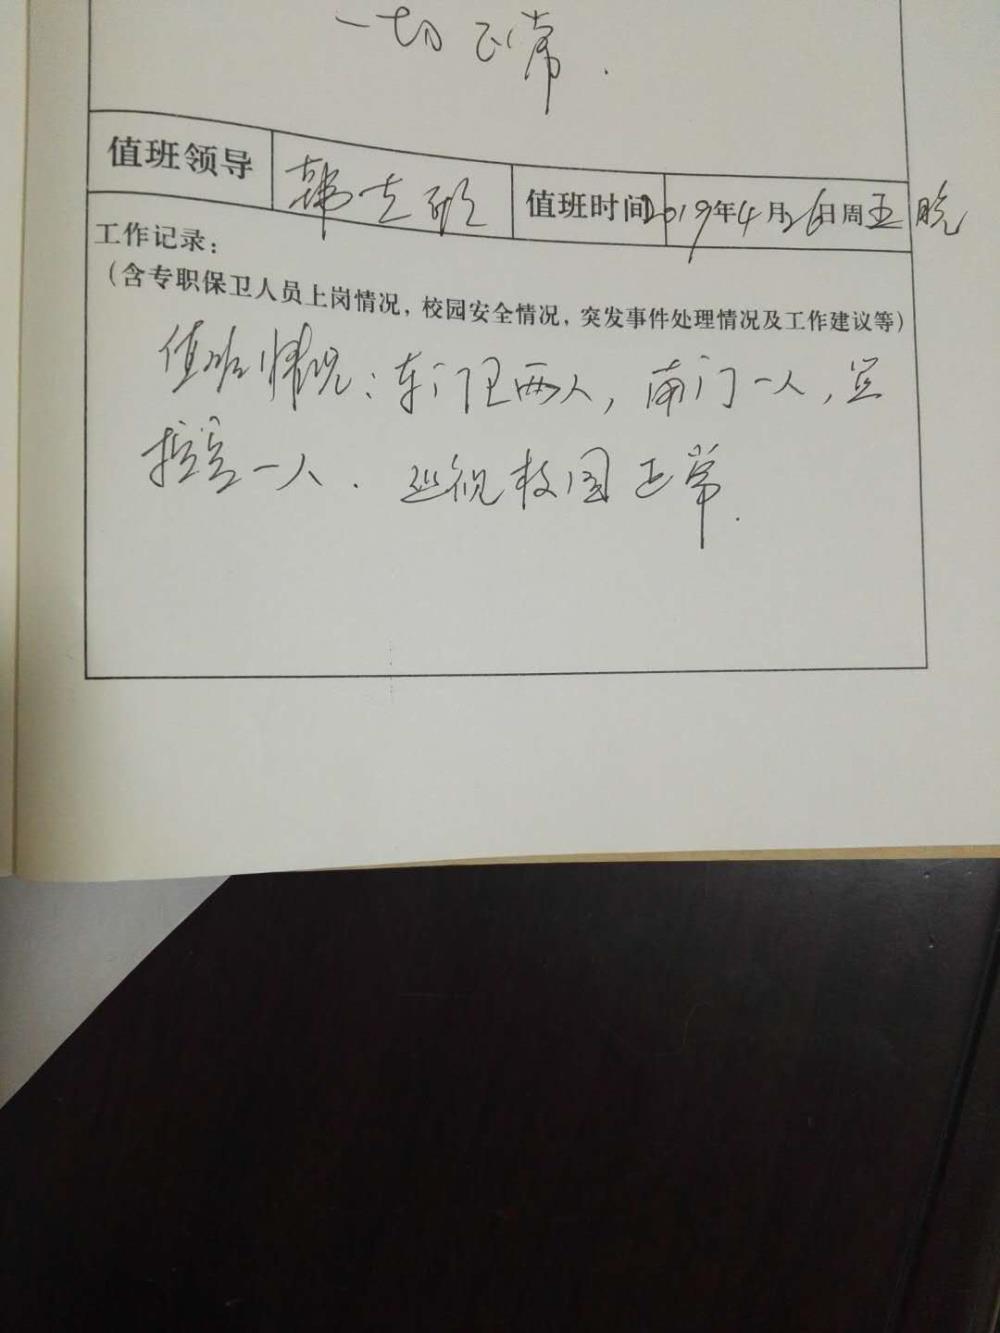 一切正常.
值班领导 韩立 值班时间 2019年4月26日周五晚
工作记录：
（含专职保卫人员上岗情况，校园安全情况，突发事件处理情况及工作建议等）
值班情况：东门卫两人，南门一人，监
控室一人．巡视校园正常.